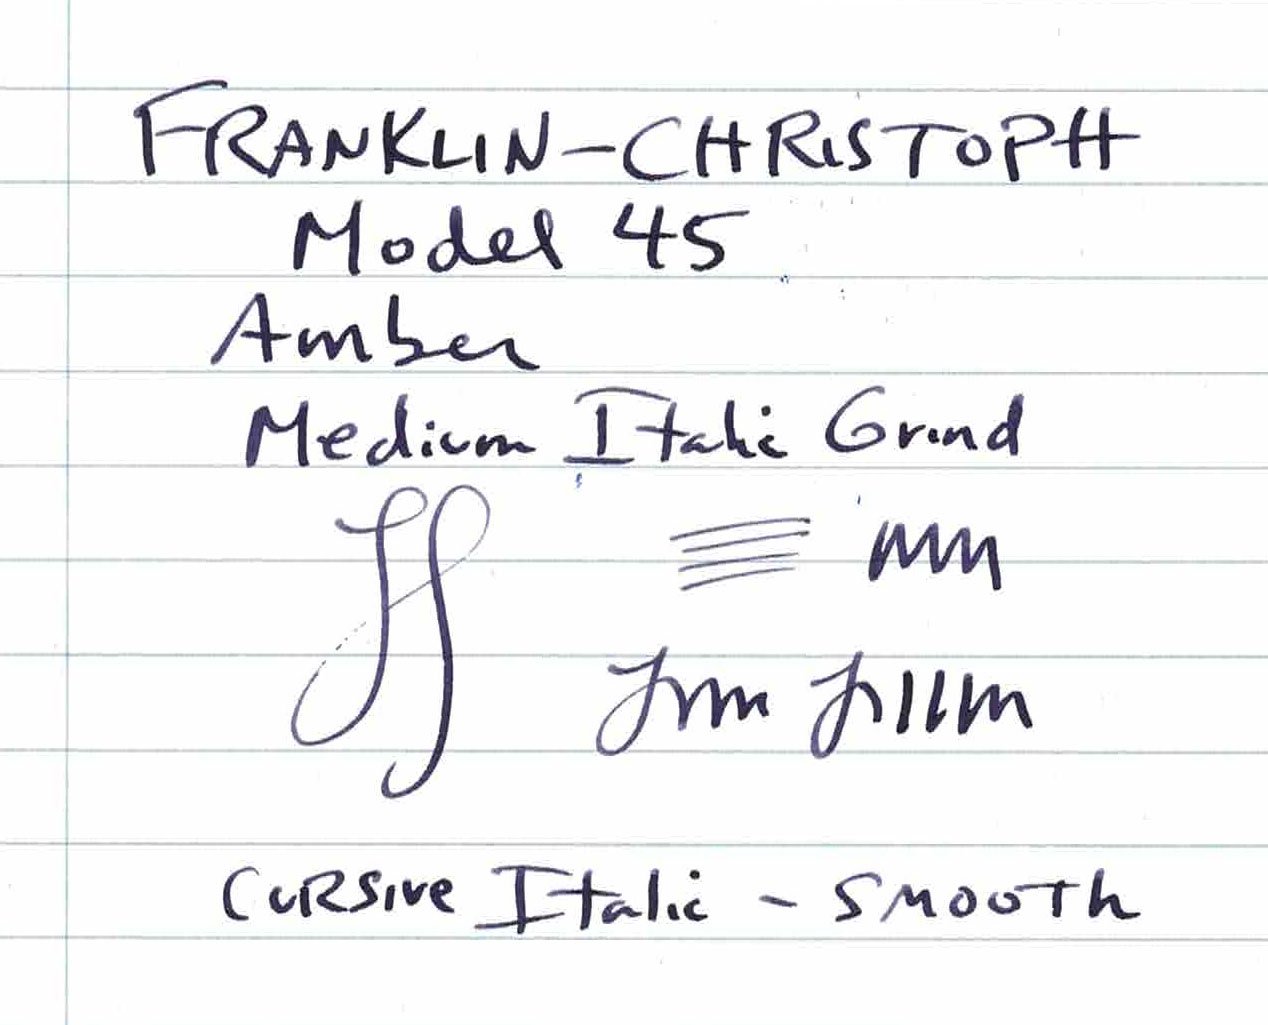 FRANKLIN-CHRISTOPH
Model 45
Amber
Medium Italic Grind
Cursive Italic - SMOOTH